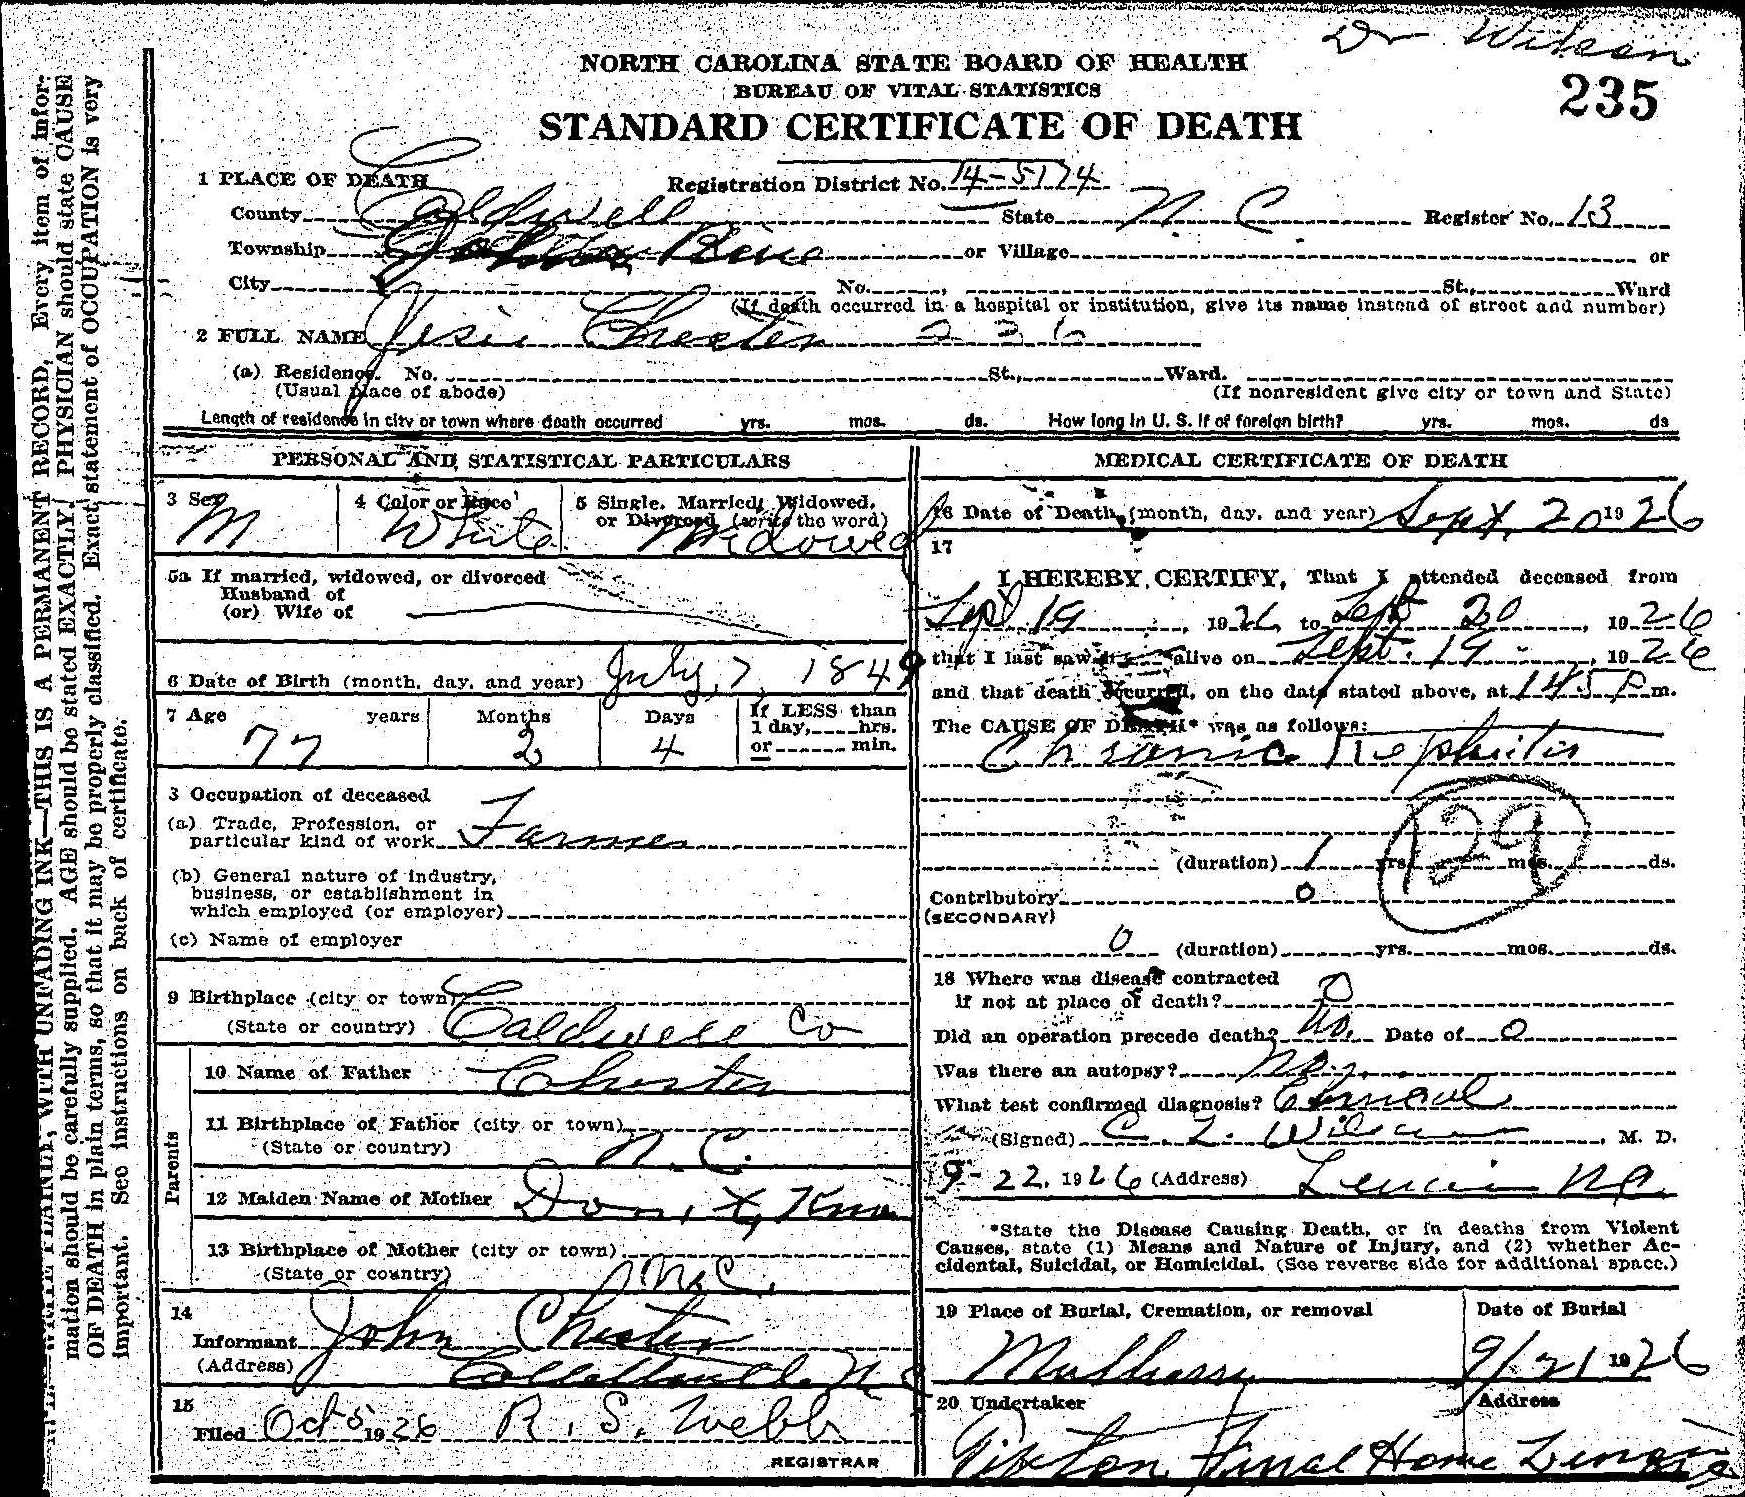 Dr Wilson
NORTH CAROLINA STATE BOARD OF HEALTH
BUREAU OF VITAL STATISTICS
235
STANDARD CERTIFICATE OF DEATH
1 PLACE OF DEATH
Registration District No. 14-5174
County Caldwell State N. C. Register No. 13
Township or Village or
City No. , St., Ward
(If death occurred in a hospital or institution, give its name instead of street and number)
2 FULL NAME Chester 236
(a) Residence. No. St., Ward.
(Usual place of abode) (If nonresident give city or town and State)
Length of residence in city or town where death occurred yrs. mos. ds. How long in U. S. if of foreign birth? yrs. mos. ds
PERSONAL AND STATISTICAL PARTICULARS
3 Sex 4 Color or Race 5 Single, Married, Widowed, or Divorced (write the word)
M White Widowed
5a If married, widowed, or divorced
Husband of
(or) Wife of
6 Date of Birth (month, day, and year) July, 7, 1849
7 Age years Months Days If LESS than
1 day, hrs.
or min.
77 2 4
3 Occupation of deceased
(a) Trade, Profession, or
particular kind of work Farmer
(b) General nature of industry,
business, or establishment in
which employed (or employer)
(c) Name of employer
9 Birthplace (city or town)
(State or country) Caldwell Co
Parents
10 Name of Father Chester
11 Birthplace of Father (city or town)
(State or country) N. C.
12 Maiden Name of Mother Don,t Know
13 Birthplace of Mother (city or town)
(State or country) N. C.
14
Informant John Chester
(Address) Collettsville N C
15
Filed Oct 5 1926 R. S. Webb
REGISTRAR
MEDICAL CERTIFICATE OF DEATH
16 Date of Death (month, day, and year) Sept, 20 1926
17
I HEREBY CERTIFY, That I attended deceased from
Sept 19, 1926, to Sept 20, 1926
that I last saw alive on Sept. 19, 1926
and that death occurred, on the date stated above, at 145 P m.
The CAUSE OF DEATH* was as follows:
Chronic Nephritis
129
(duration) 1 yrs. mos. ds.
Contributory 0
(SECONDARY)
0 (duration) yrs. mos. ds.
18 Where was disease contracted
if not at place of death? 0
Did an operation precede death? No. Date of 0
Was there an autopsy? No.
What test confirmed diagnosis? Clinical
(Signed) C. L. Wilson, M. D.
9-22, 1926 (Address) Lenoir N C.
*State the Disease Causing Death, or in deaths from Violent
Causes, state (1) Means and Nature of Injury, and (2) whether Ac-
cidental, Suicidal, or Homicidal. (See reverse side for additional space.)
19 Place of Burial, Cremation, or removal Date of Burial
Mulberry 9/21 1926
20 Undertaker Address
Home Lenoir
WRITE PLAINLY, WITH UNFADING INK—THIS IS A PERMANENT RECORD. Every item of infor-
mation should be carefully supplied. AGE should be stated EXACTLY. PHYSICIAN should state CAUSE
OF DEATH in plain terms, so that it may be properly classified. Exact statement of OCCUPATION is very
important. See instructions on back of certificate.